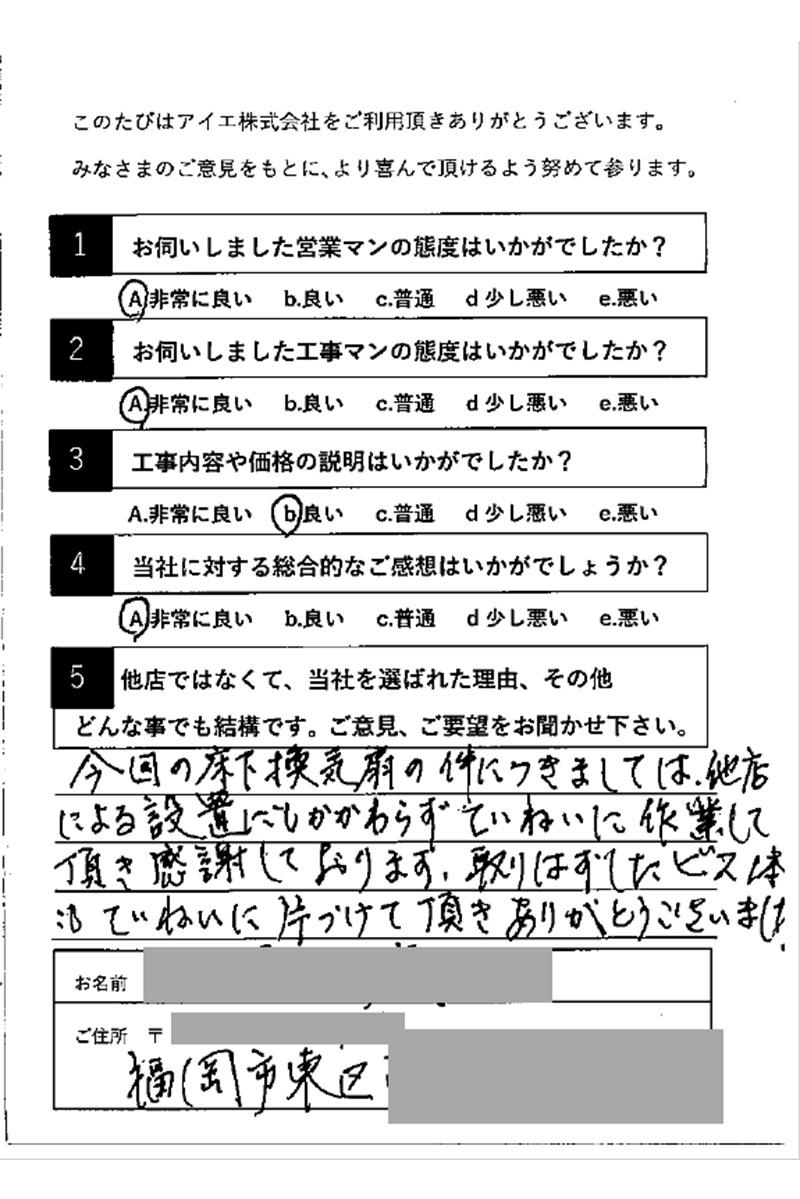 このたびはアイエ株式会社をご利用頂きありがとうございます。
みなさまのご意見をもとに、より喜んで頂けるよう努めて参ります。
1 お伺いしました営業マンの態度はいかがでしたか？
A.非常に良い b.良い c.普通 d 少し悪い e.悪い
2 お伺いしました工事マンの態度はいかがでしたか？
A.非常に良い b.良い c.普通 d 少し悪い e.悪い
3 工事内容や価格の説明はいかがでしたか？
A.非常に良い b.良い c.普通 d 少し悪い e.悪い
4 当社に対する総合的なご感想はいかがでしょうか？
A.非常に良い b.良い c.普通 d 少し悪い e.悪い
5 他店ではなくて、当社を選ばれた理由、その他
どんな事でも結構です。ご意見、ご要望をお聞かせ下さい。
今回の床下換気扇の件につきましては、他店
による設置にもかかわらずていねいに作業して
頂き感謝しております。取りはずしたビス1本
ていねいに片づけて頂きありがとうございまし
お名前
ご住所 〒
福岡市東区